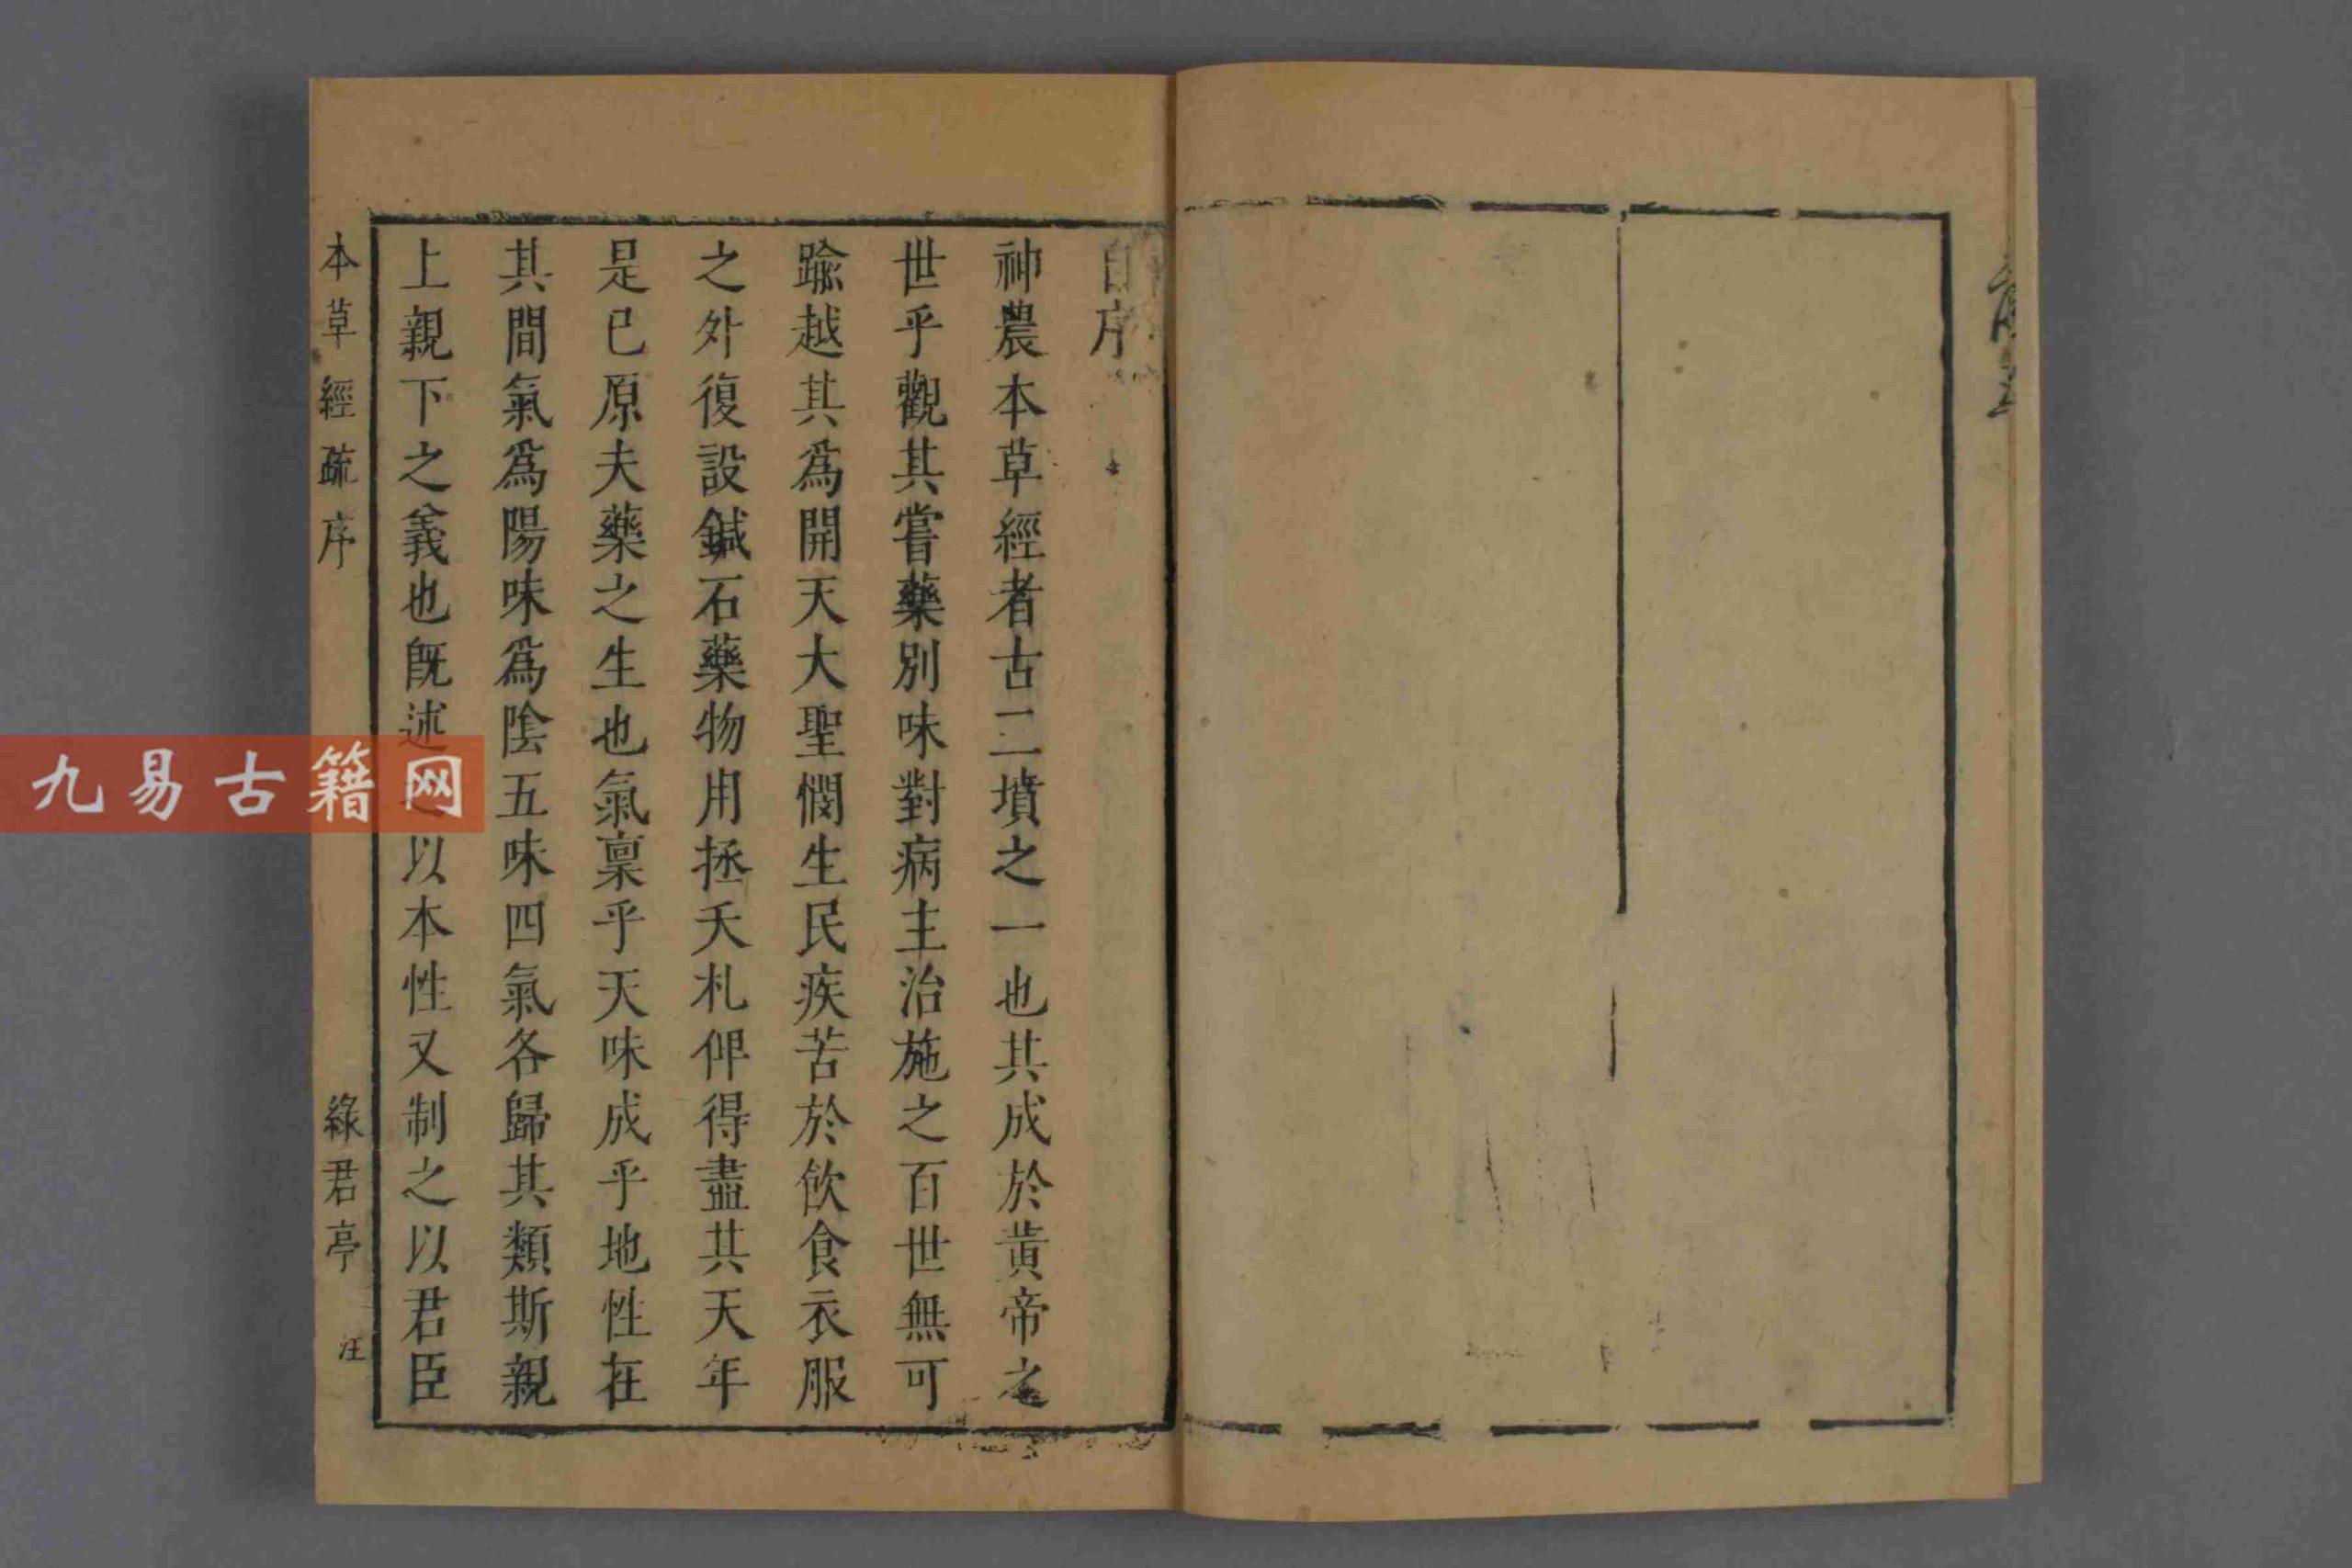 自序
神農本草經者古三墳之一也其成於黃帝之
世乎觀其嘗藥別味對病主治施之百世無可
踰越其爲開天大聖憫生民疾苦於飲食衣服
之外復設鍼石藥物用拯夭札俾得盡其天年
是已原夫藥之生也氣稟乎天味成乎地性在
其間氣爲陽味爲陰五味四氣各歸其類斯親
上親下之義也旣述以本性又制之以君臣
本草經疏序
綠君亭
汪
九易古籍网